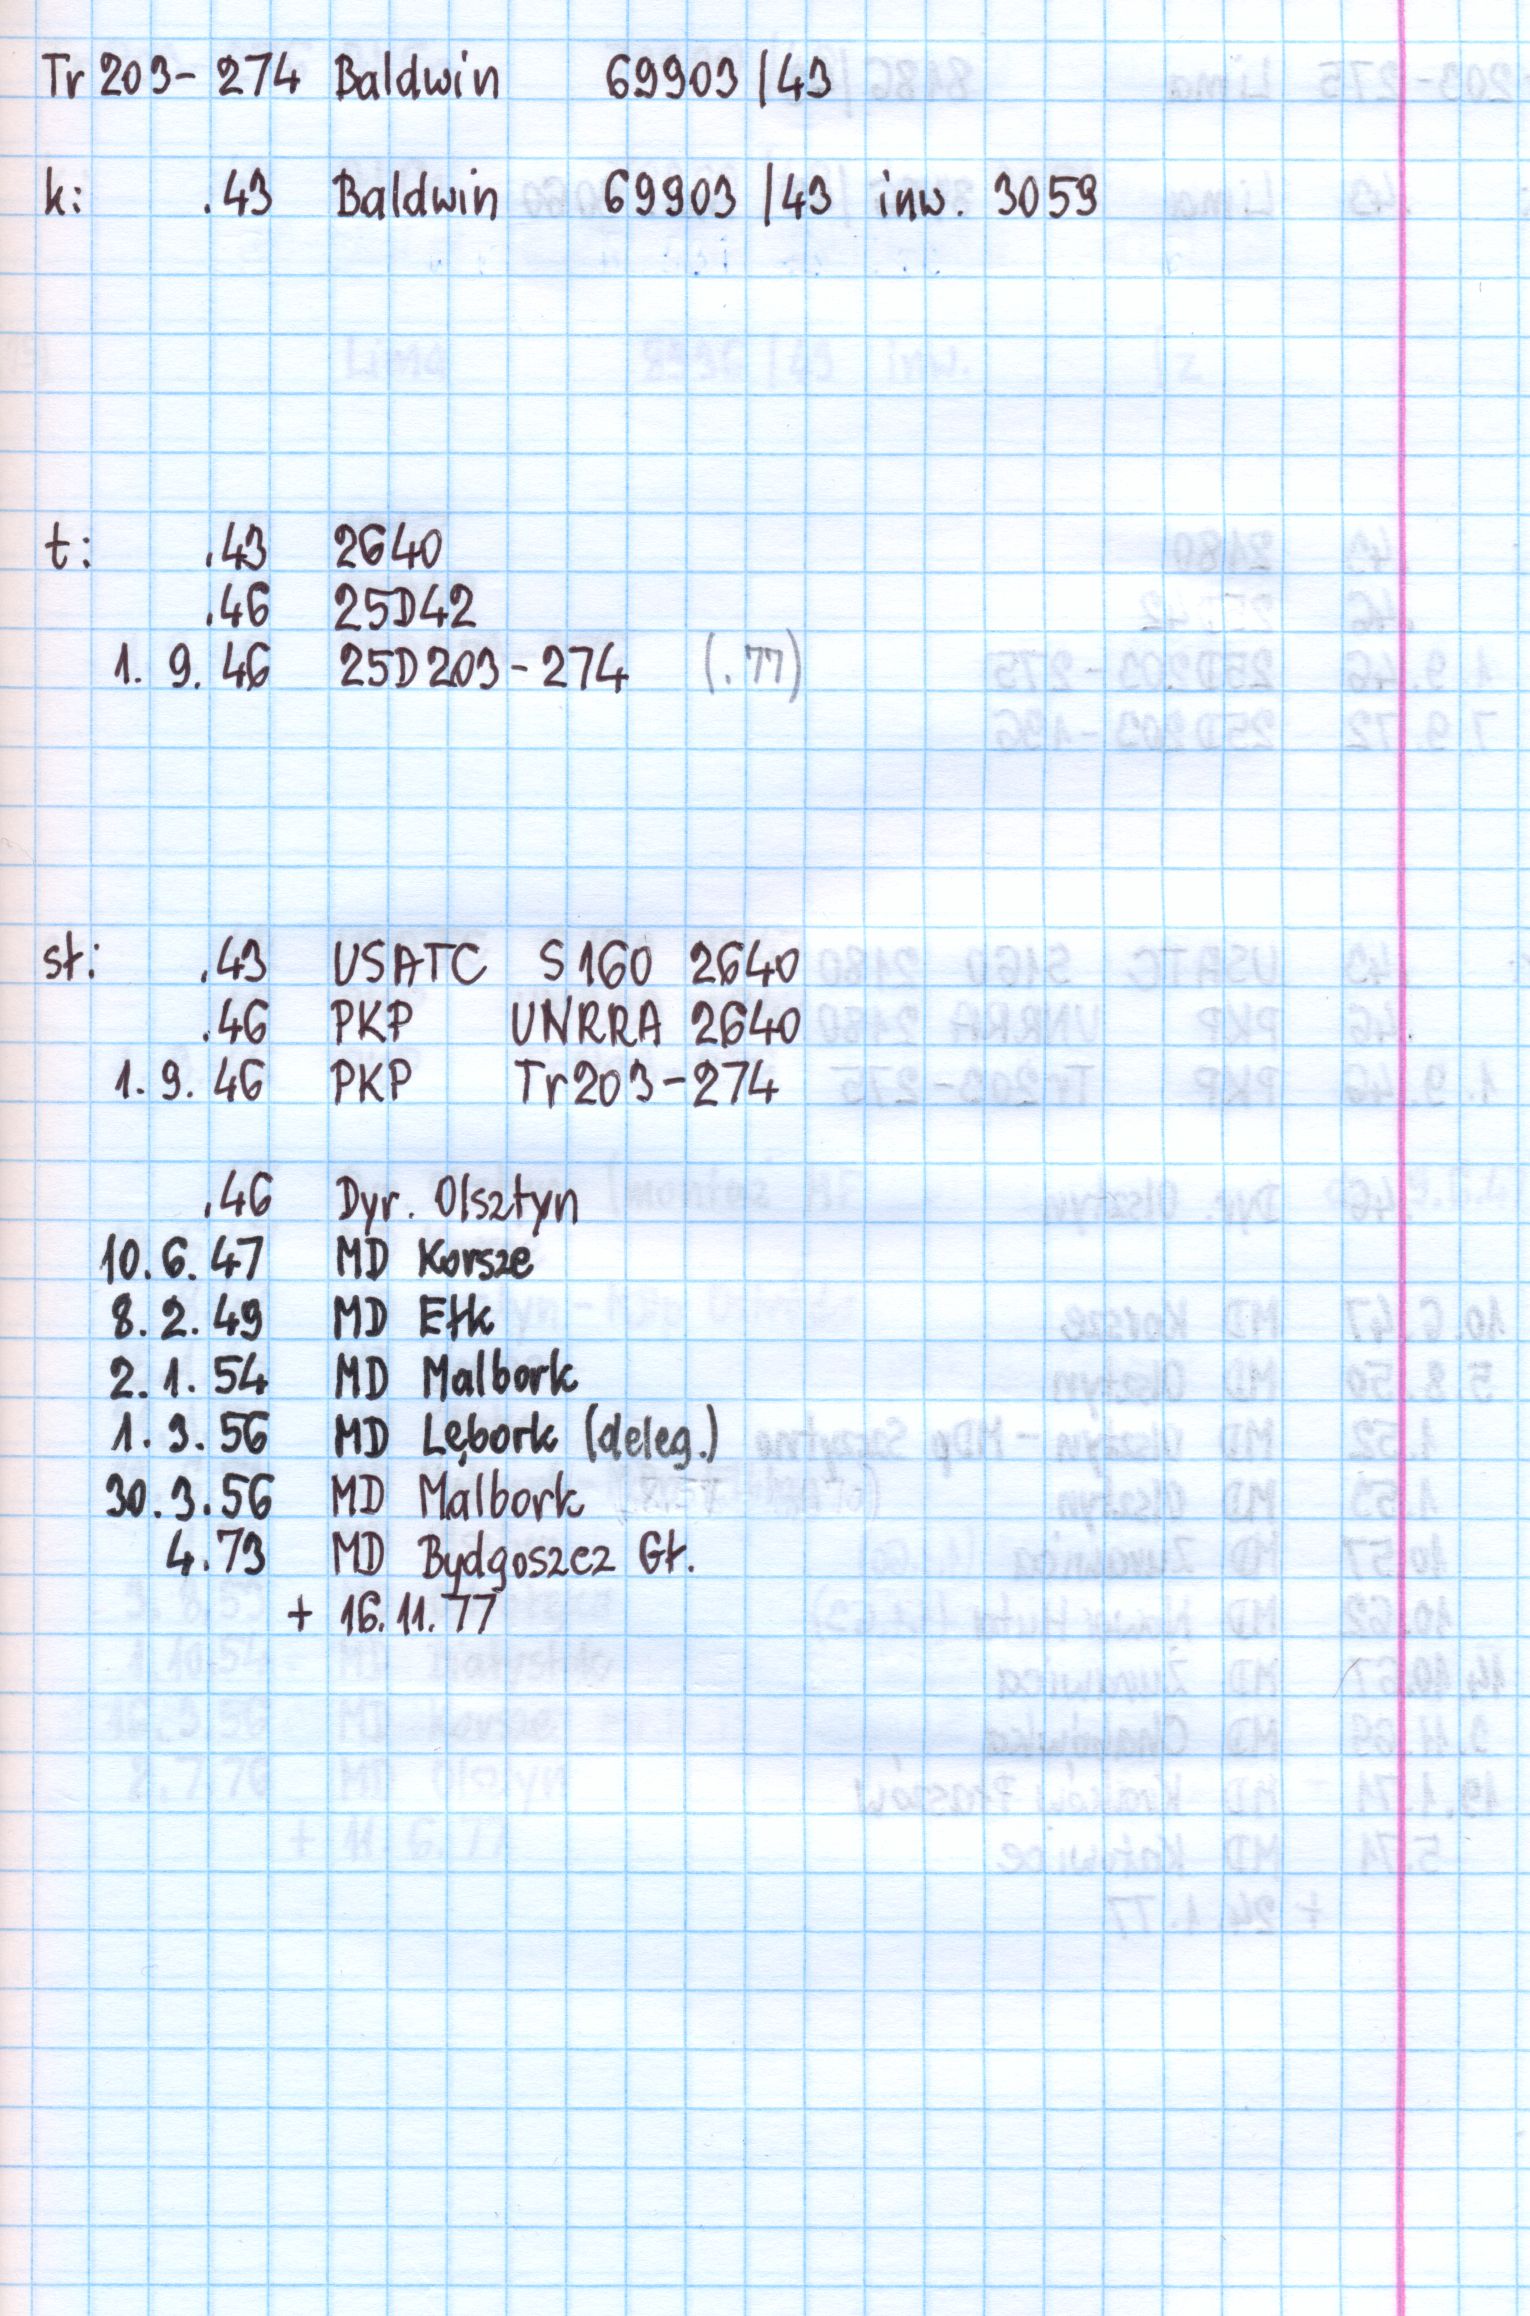 Tr 203-274 Baldwin 69903/43
k: .43 Baldwin 69903/43 inw. 3059
t: .43 2640
.46 25D42
1. 9. 46 25D203-274 (.77)
st: .43 USATC S160 2640
.46 PKP UNRRA 2640
1. 9. 46 PKP Tr203-274
.46 Dyr. Olsztyn
10. 6. 47 MD Korsze
8. 2. 49 MD Ełk
2. 1. 54 MD Malbork
1. 3. 56 MD Lębork (deleg.)
30. 3. 56 MD Malbork
4.73 MD Bydgoszcz Gł.
+ 16. 11. 77